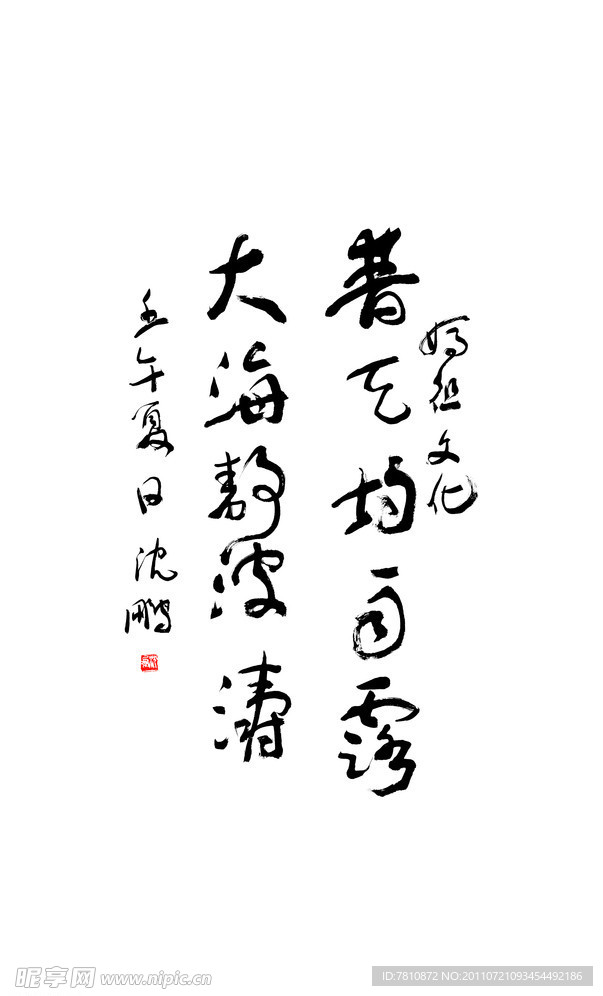 媽祖文化
普天均雨露
大海靜波濤
壬午夏日 沈鵬
昵享网 www.nipic.cn
ID:7810872 NO:20110721093454492186